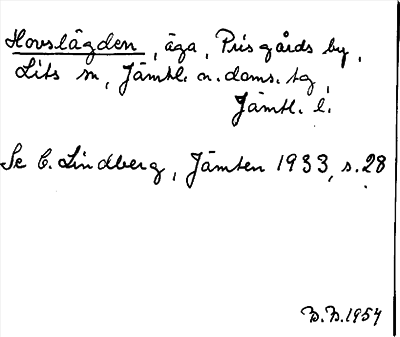 Hovslägden, äga, Prisgårds by,
Lits sn, Jämtl. n. doms. tg,
Jämtl. l.
Se C. Lindberg, Jämten 1933, s. 28
B.B. 1954